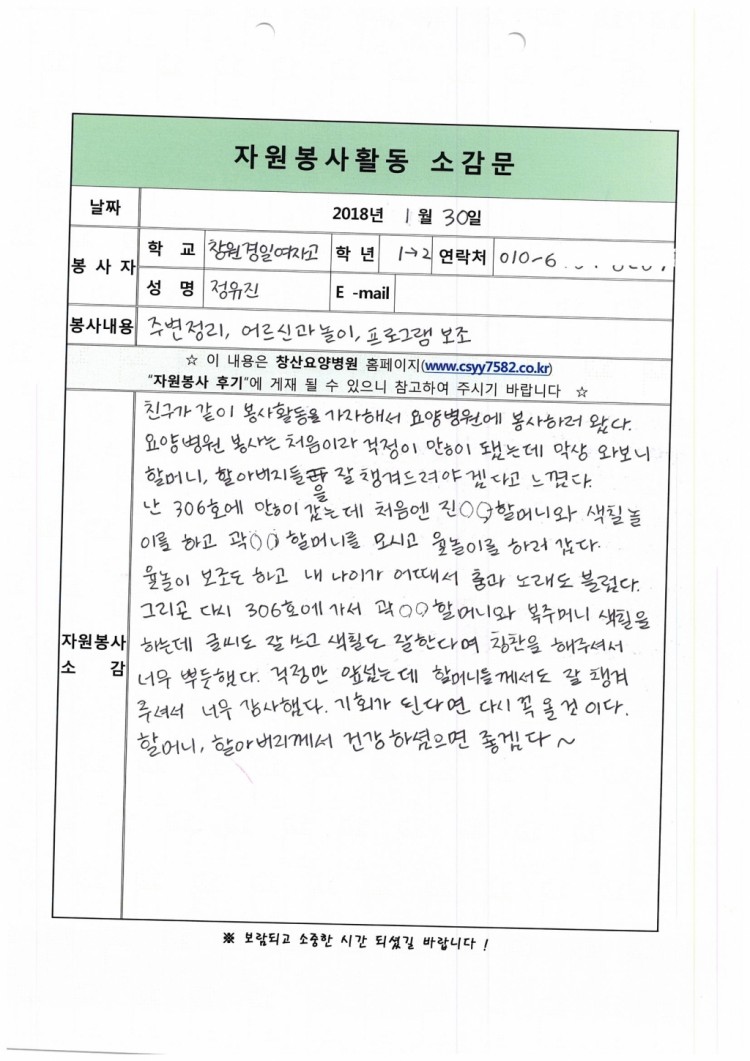 자원봉사활동 소감문
날짜 2018년 1월 30일
봉사자 학교 창원경일여자고 학년 1→2 연락처 010-6
성명 정유진 E-mail
봉사내용 주변정리, 어르신과놀이, 프로그램 보조
☆ 이 내용은 창산요양병원 홈페이지(www.csyy7582.co.kr)
“자원봉사 후기”에 게재 될 수 있으니 참고하여 주시기 바랍니다 ☆
자원봉사 소감
친구가 같이 봉사활동을 가자해서 요양병원에 봉사하러 왔다.
요양병원 봉사는 처음이라 걱정이 많이 됐는데 막상 와보니
할머니, 할아버지들을 잘 챙겨드려야 겠다고 느꼈다.
난 306호에 많이 갔는데 처음엔 진○○할머니와 색칠놀
이를 하고 곽○○ 할머니를 모시고 윷놀이를 하러 갔다.
윷놀이 보조도 하고 내 나이가 어때서 춤과 노래도 불렀다.
그리곤 다시 306호에 가서 곽○○할머니와 복주머니 색칠을
하는데 글씨도 잘 쓰고 색칠도 잘한다며 칭찬을 해주셔서
너무 뿌듯했다. 걱정만 앞섰는데 할머니들께서도 잘 챙겨
주셔서 너무 감사했다. 기회가 된다면 다시 꼭 올 것 이다.
할머니, 할아버지께서 건강하셨으면 좋겠다~
※ 보람되고 소중한 시간 되셨길 바랍니다!